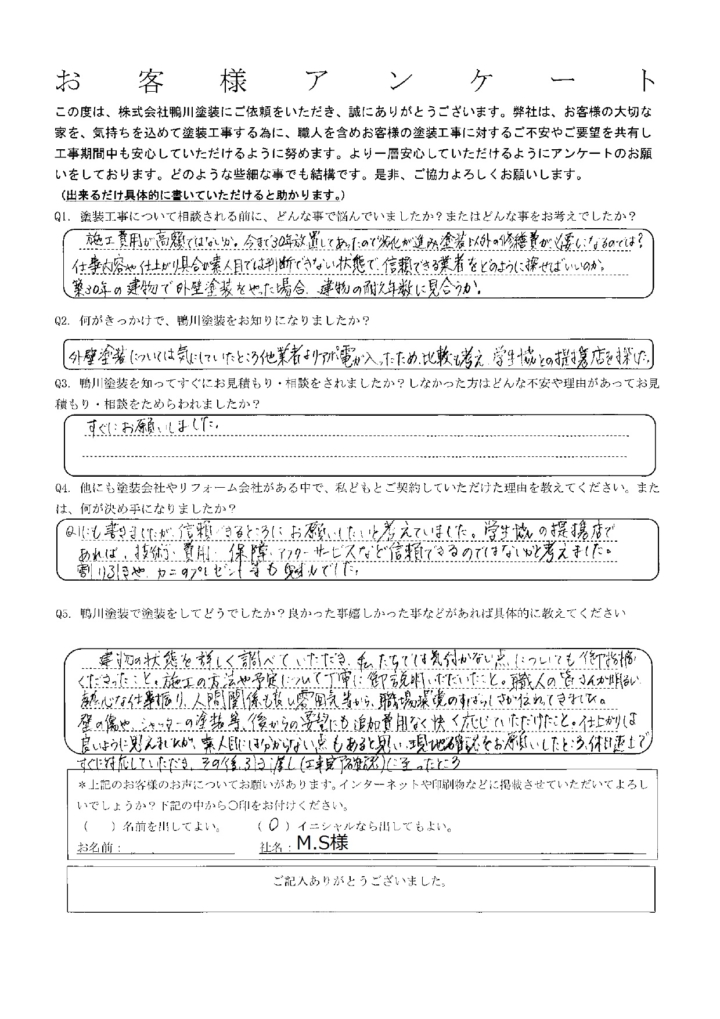 お客様アンケート
この度は、株式会社鴨川塗装にご依頼をいただき、誠にありがとうございます。弊社は、お客様の大切な
家を、気持ちを込めて塗装工事する為に、職人を含めお客様の塗装工事に対するご不安やご要望を共有し
工事期間中も安心していただけるように努めます。より一層安心していただけるようにアンケートのお願
いをしております。どのような些細な事でも結構です。是非、ご協力よろしくお願いします。
（出来るだけ具体的に書いていただけると助かります。）
Q1. 塗装工事について相談される前に、どんな事で悩んでいましたか？またはどんな事をお考えでしたか？
施工費用が高額ではないか。今まで30年放置してあったので劣化が進み塗装以外の修繕費が必要になるのでは？
仕事内容や仕上がり具合が素人目では判断できない状態で、信頼できる業者をどのように探せばいいのか。
築30年の建物で外壁塗装をやった場合、建物の耐久年数に見合うか。
Q2. 何がきっかけで、鴨川塗装をお知りになりましたか？
外壁塗装については気にしていたところ他業者よりアポ電が入ったため、比較も考え、学生協との提携店を探した。
Q3. 鴨川塗装を知ってすぐにお見積もり・相談をされましたか？しなかった方はどんな不安や理由があってお見
積もり・相談をためらわれましたか？
すぐにお願いしました。
Q4. 他にも塗装会社やリフォーム会社がある中で、私どもとご契約していただけた理由を教えてください。また
は、何が決め手になりましたか？
Q1にも書きましたが、信頼できるところにお願いしたいと考えていました。学生協の提携店で
あれば、技術力・費用・保障・アフターサービスなど信頼できるのではないかと考えました。
割り引きや、カニのプレゼント等も魅力でした。
Q5. 鴨川塗装で塗装をしてどうでしたか？良かった事嬉しかった事などがあれば具体的に教えてください
建物の状態を詳しく調べていただき、私たちでは気付かない点についても御指摘
くださったこと。施工の方法や予定について丁寧に御説明いただいたこと。職人の皆さんが明るい
熱心な仕事振り、人間関係も良い雰囲気等から、職場環境のすばらしさが伝わってきました。
壁の傷や、シャッターの塗装等、後からの要望にも追加費用なく快く応じていただけたこと。仕上がりは
良いように見えましたが、素人目には分からない点もあると思い、現地確認をお願いしたところ、休日返上で
すぐに対応していただき、その後、引き渡し(工事完了確認)に至ったところ
＊上記のお客様のお声についてお願いがあります。インターネットや印刷物などに掲載させていただいてよろし
いでしょうか？下記の中から〇印をお付けください。
（　）名前を出してよい。　（〇）イニシャルなら出してもよい。
お名前：　社名：M.S様
ご記入ありがとうございました。